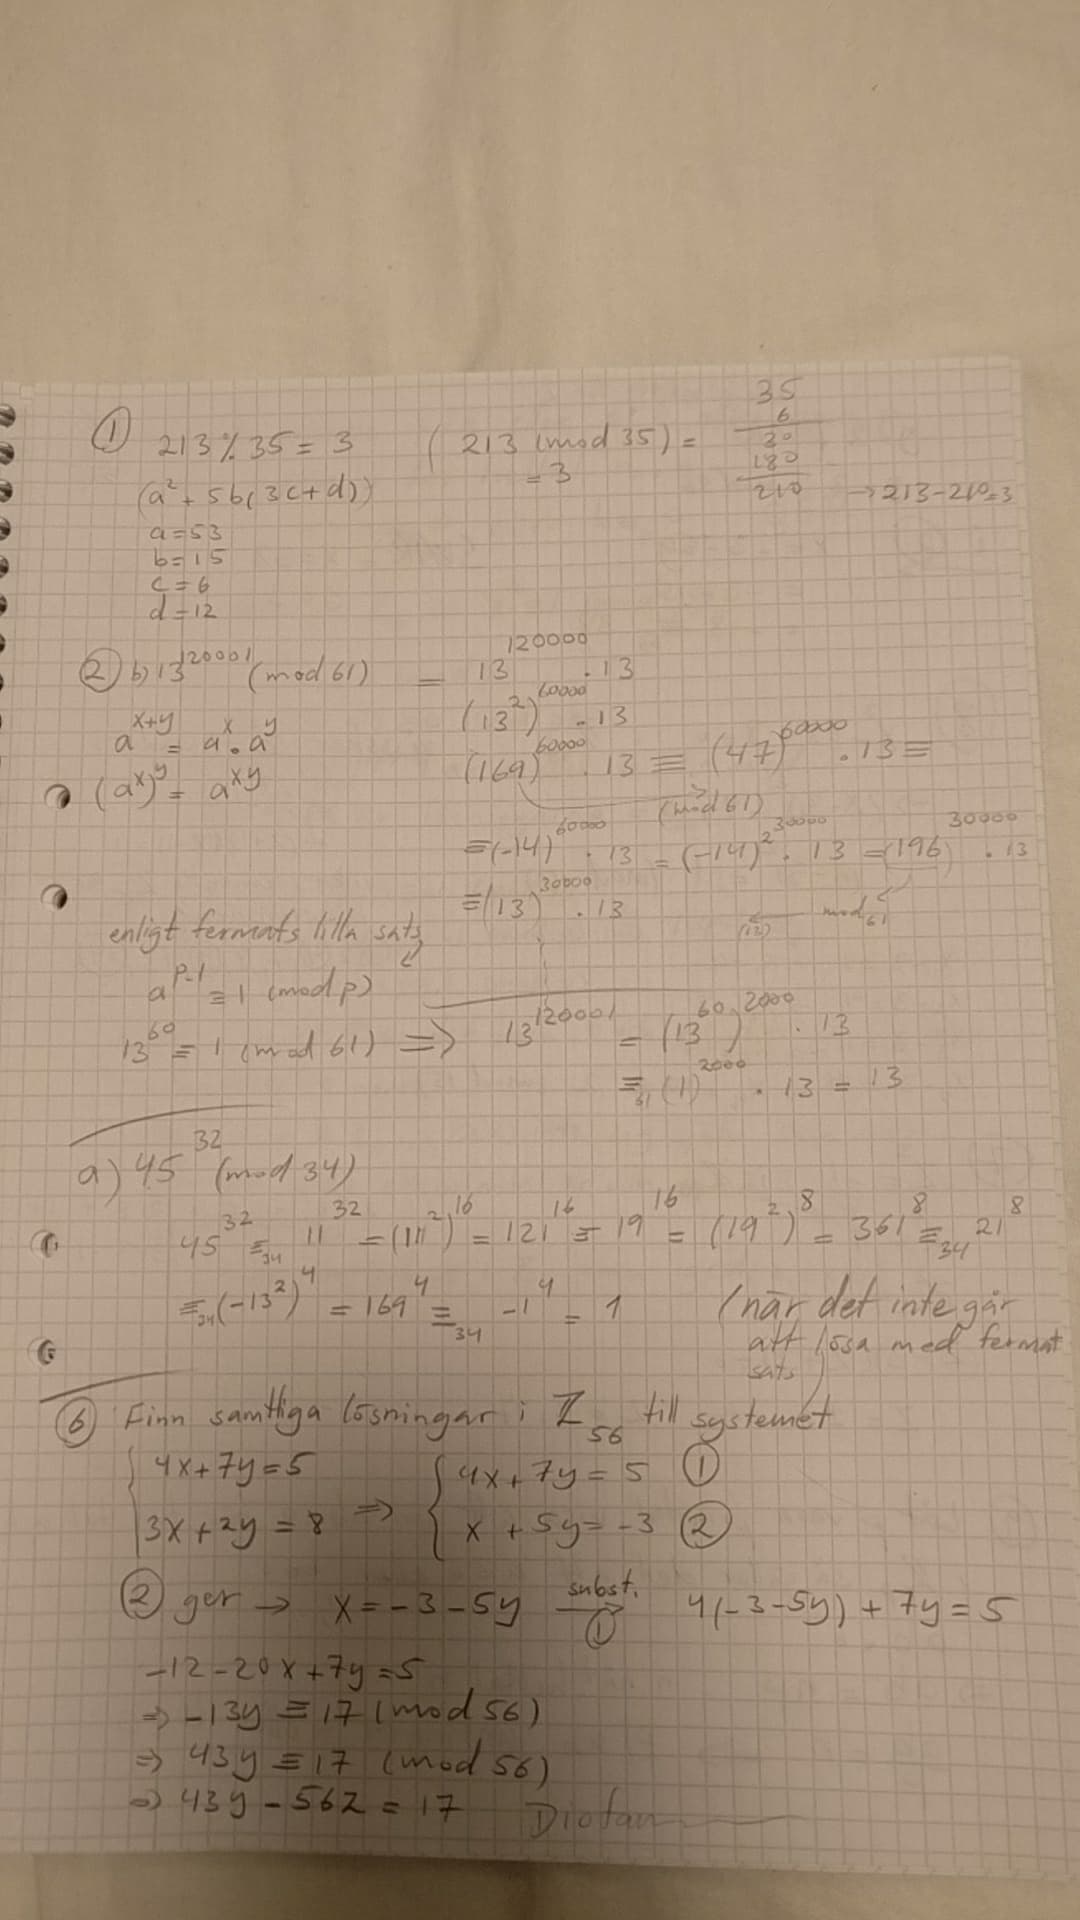 ① 213 % 35 = 3 ( 213 (mod 35) = = 3
35
6
30
180
210 → 213-210=3
(a² + 5b(3c+d))
a=53
b=15
c=6
d=12
② b) 13^120001 (mod 61) = 13^120000 · 13
a^x+y = a^x · a^y
(a^x)^y = a^xy
(13²)^60000 · 13
(169)^60000 · 13 ≡ (47)^60000 · 13 ≡
(mod 61)
≡(-14)^60000 · 13 = (-14)^2^30000 · 13 = (196)^30000 · 13
≡(13)^30000 · 13
mod 61
enligt fermats lilla sats
a^p-1 ≡ 1 (mod p)
13^60 ≡ 1 (mod 61) ⇒ 13^120001 = (13^60)^2000 · 13
≡₆₁ (1)^2000 · 13 = 13
a) 45^32 (mod 34)
45^32 ≡₃₄ 11^32 = (11²)^16 = 121^16 ≡ 19^16 = (19²)^8 = 361^8 ≡₃₄ 21^8
≡₃₄ (-13²)^4 = 169^4 ≡₃₄ -1^4 = 1
(när det inte går
att lösa med fermat
sats
⑥ Finn samtliga lösningar i ℤ₅₆ till systemet
{ 4x+7y=5 { 4x+7y=5 ①
3x+2y=8 ⇒ x+5y=-3 ②
② ger → x=-3-5y subst. ① → 4(-3-5y)+7y=5
-12-20x+7y=5
⇒ -13y ≡ 17 (mod 56)
⇒ 43y ≡ 17 (mod 56)
⇒ 43y - 56z = 17 Diofan